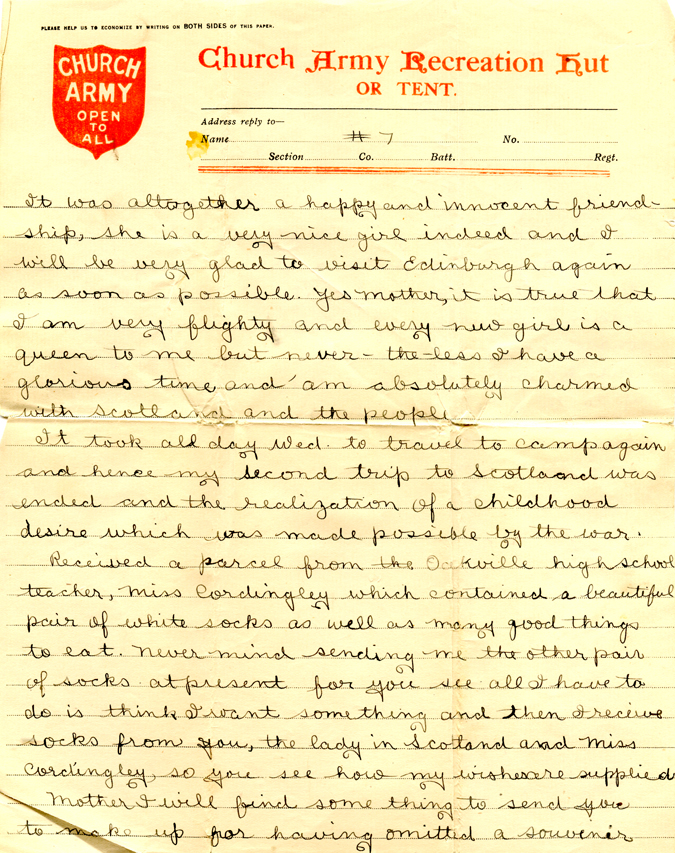 PLEASE HELP US TO ECONOMIZE BY WRITING ON BOTH SIDES OF THIS PAPER.
CHURCH
ARMY
OPEN
TO
ALL
Church Army Recreation Hut
OR TENT.
Address reply to—
Name # 7 No.
Section Co. Batt. Regt.
It was altogether a happy and innocent friend-
ship, she is a very nice girl indeed and I
will be very glad to visit Edinburgh again
as soon as possible. Yes mother, it is true that
I am very flighty and every new girl is a
queen to me but never-the-less I have a
glorious time and am absolutely charmed
with Scotland and the people
It took all day Wed. to travel to camp again
and hence my second trip to Scotland was
ended and the realization of a childhood
desire which was made possible by the war.
Received a parcel from the Oakville high school
teacher, Miss Cordingley which contained a beautiful
pair of white socks as well as many good things
to eat. Never mind sending me the other pair
of socks at present for you see all I have to
do is think I want something and then I receive
socks from you, the lady in Scotland and Miss
Cordingley, so you see how my wishes are supplied
Mother I will find some thing to send you
to make up for having omitted a souvenir